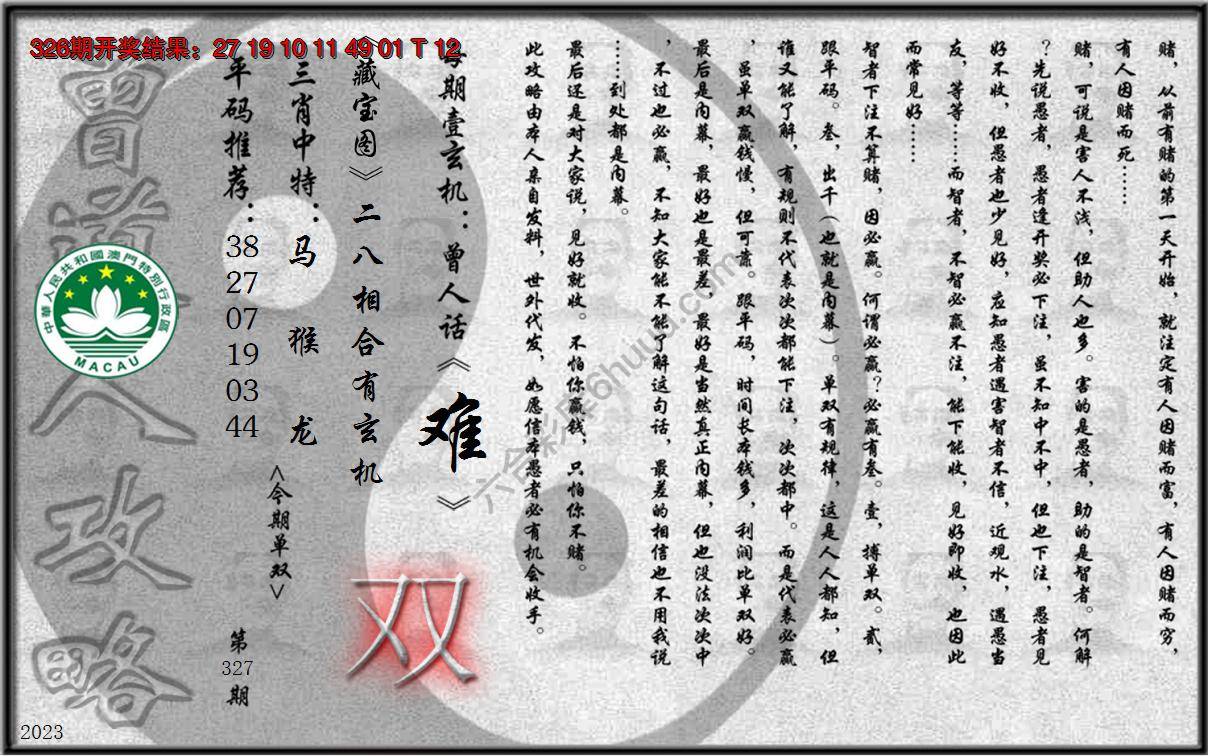 326期开奖结果：27 19 10 11 49 01 T 12
赌，从前有赌的第一天开始，就注定有人因赌而富，有人因赌而穷，
有人因赌而死……
赌，可说是害人不浅，但助人也多。害的是愚者，助的是智者。何解
？先说愚者，愚者逢开奖必下注，虽不知中不中，但也下注，愚者见
好不收，但愚者也少见好，应知愚者遇害智者不信，近观水，遇愚当
友，等等……而智者，不智必赢不注，能下能收，见好即收，也因此
而常见好……
智者下注不算赌，因必赢。何谓必赢？必赢有叁。壹，搏单双。贰，
跟平码。叁，出千（也就是内幕）。单双有规律，这是人人都知，但
谁又能了解，有规则不代表次次都能下注，次次都中。而是代表必赢
，虽单双赢钱慢，但可靠。跟平码，时间长本钱多，利润比单双好。
最后是内幕，最好也是最差，最好是当然真正内幕，但也没法次次中
，不过也必赢，不知大家能不能了解这句话，最差的相信也不用我说
……到处都是内幕。
最后还是对大家说，见好就收。不怕你赢钱，只怕你不赌。
此攻略由本人亲自发料，世外代发，如愿信本愚者必有机会收手。
每期壹玄机：曾人话《难》
《藏宝图》二八相合有玄机
双
三肖中特：马 猴 龙
<今期单双>
平码推荐：38 27 07 19 03 44
第327期
曾道人攻略
中華人民共和國澳門特別行政區
MACAU
六合彩库6huuu.com
2023